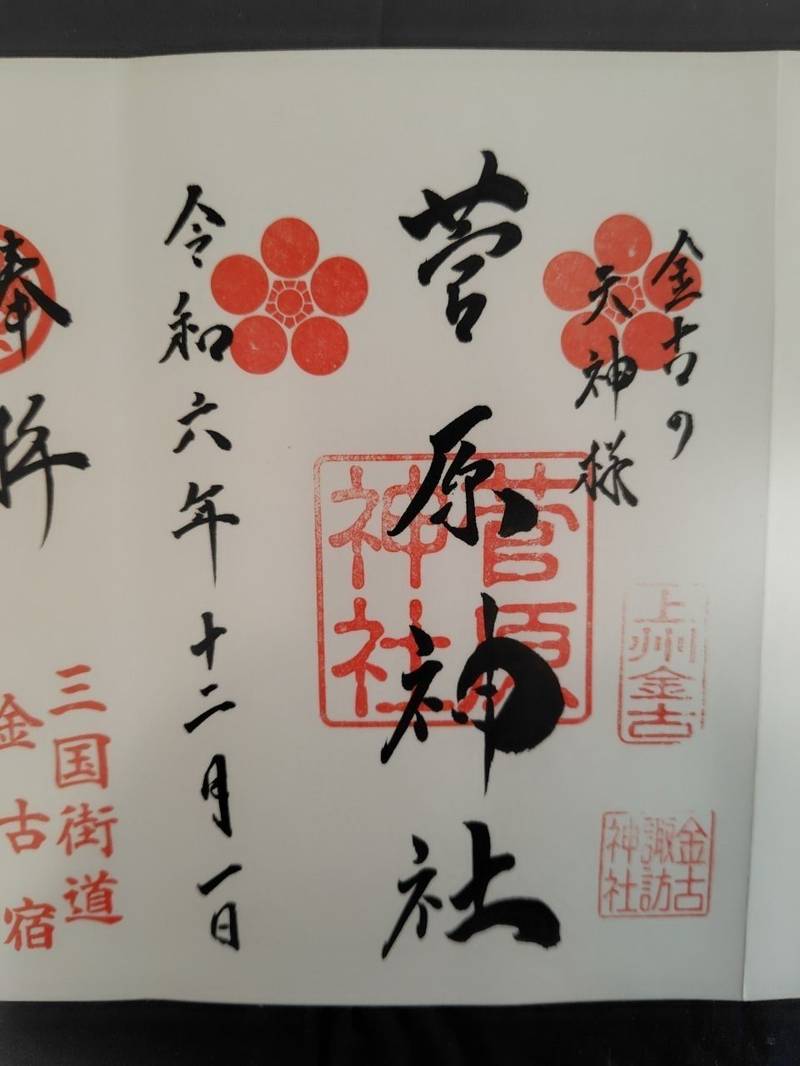 金古の
天神様
菅原神社
菅原
神社
上州金古
金古
諏訪
神社
令和六年十二月一日
奉拝
三国街道
金古宿